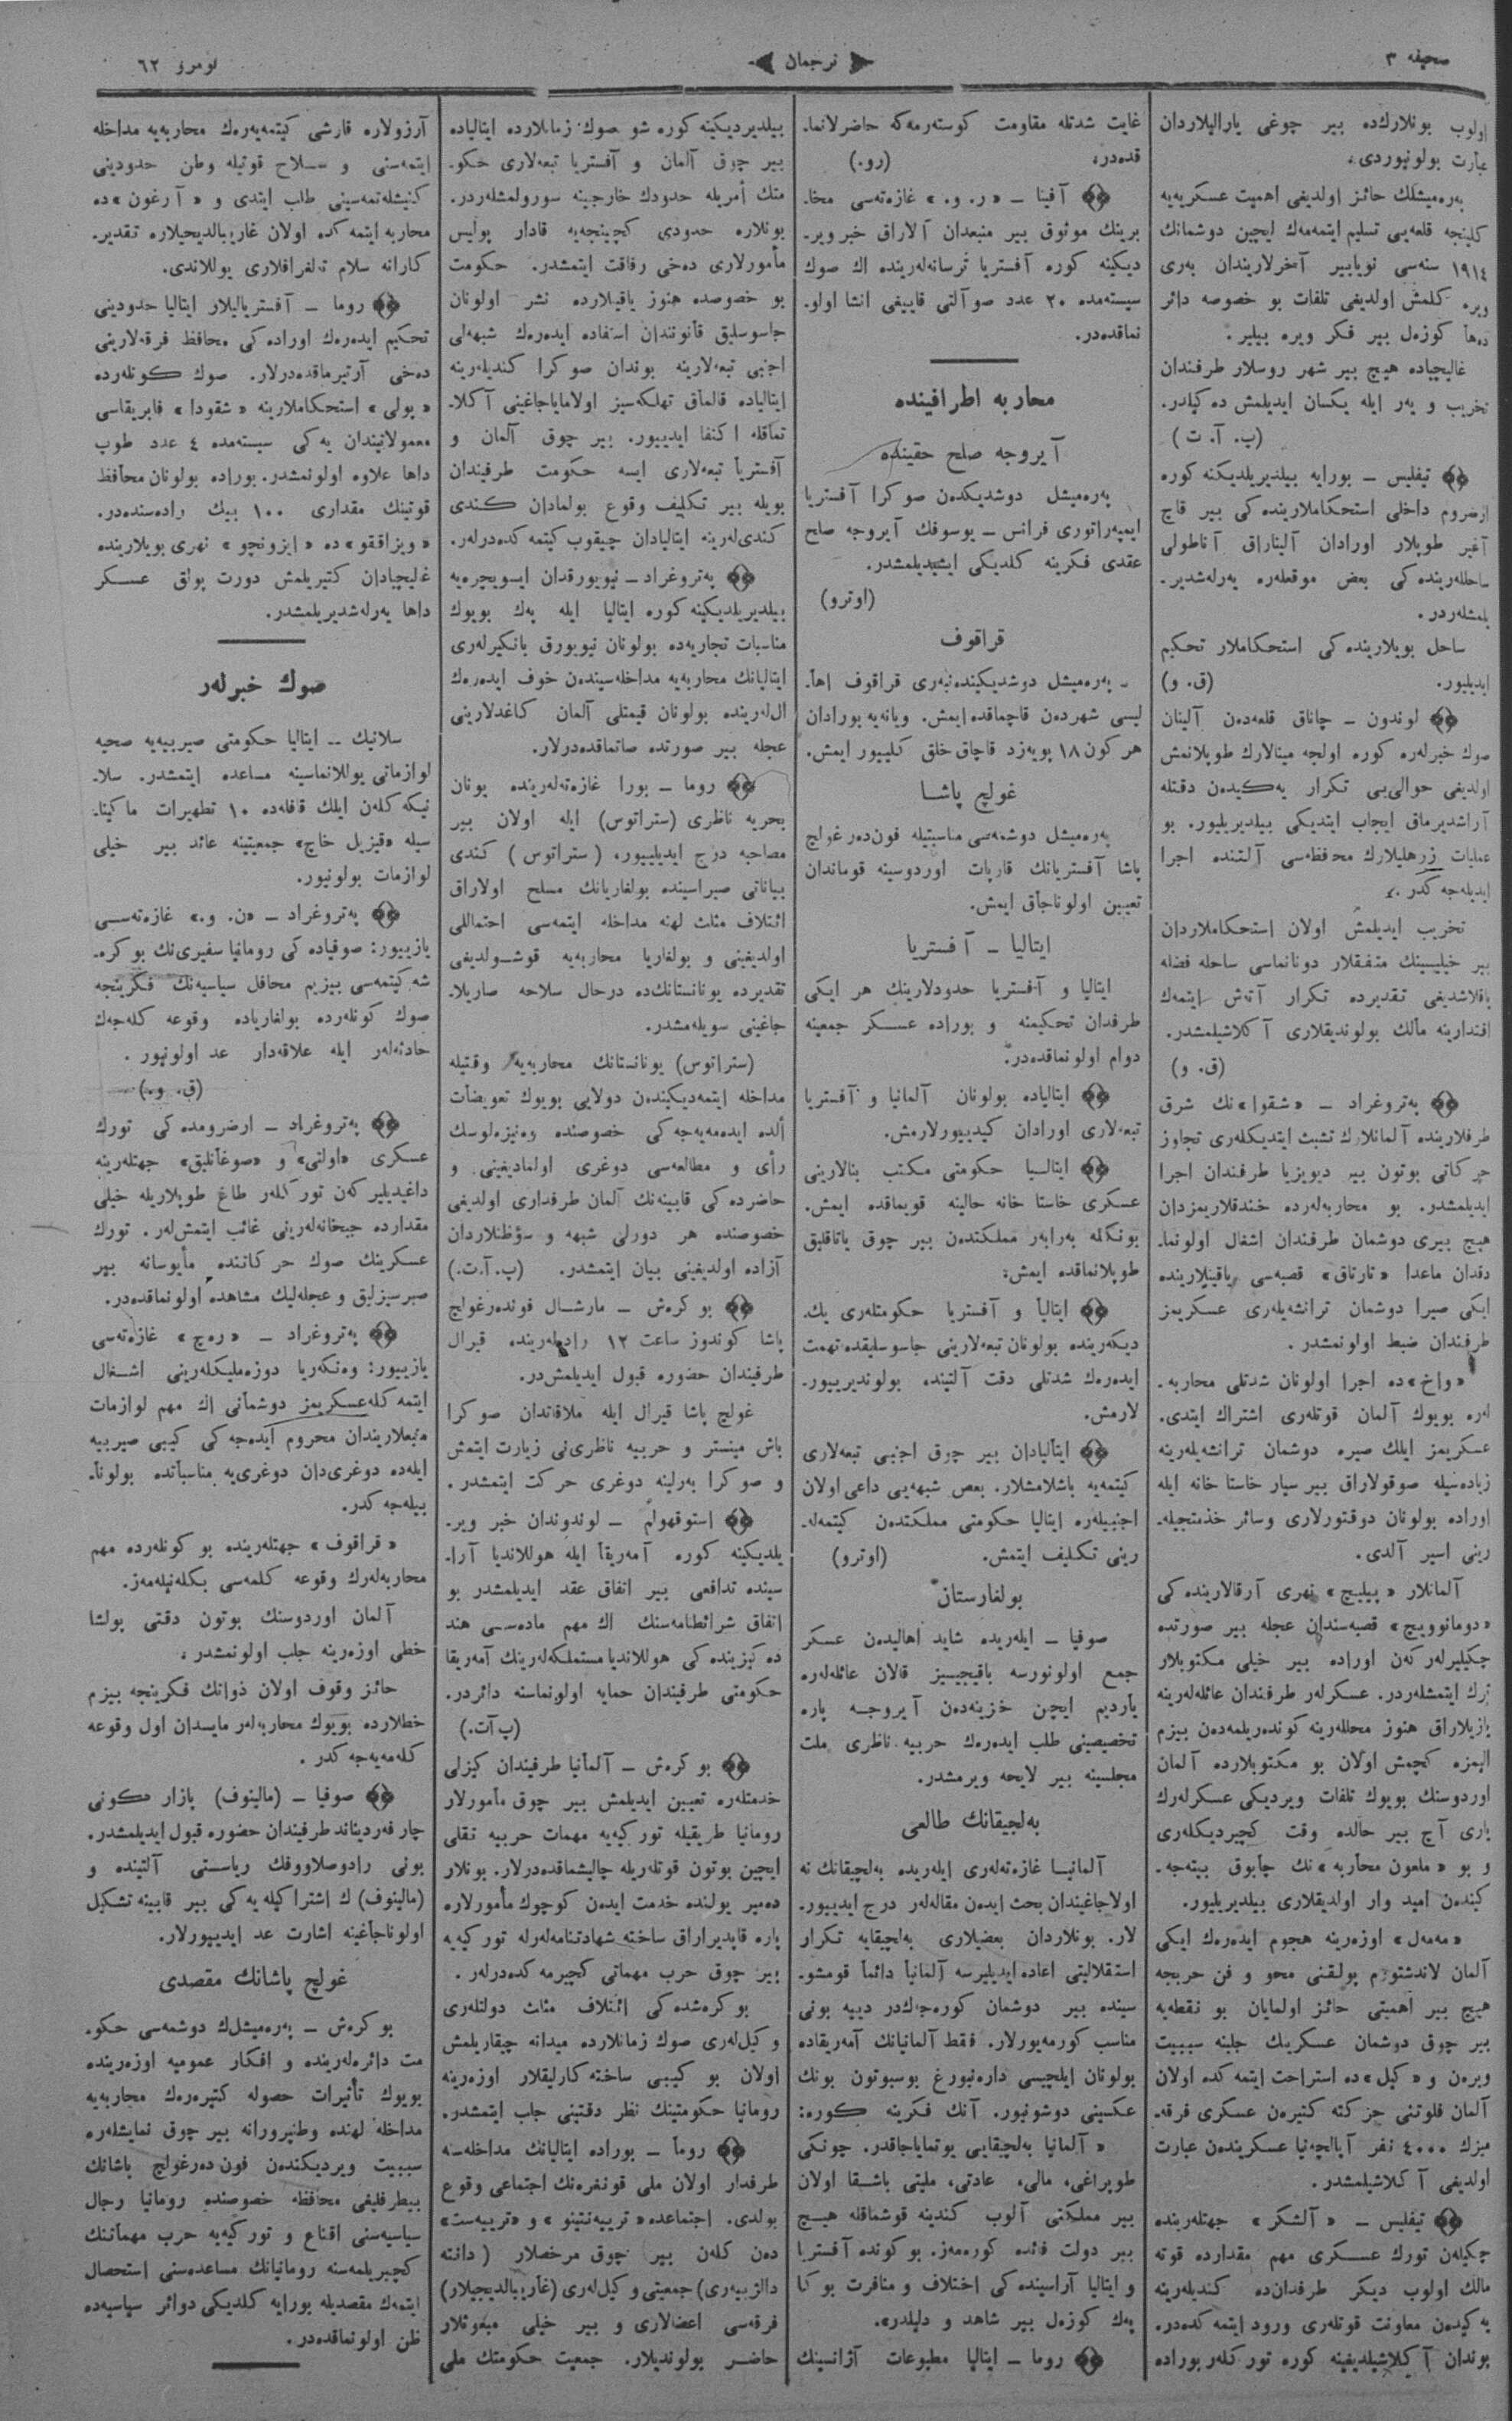 صحیفه ٣
ترجمان
نومرۇ ٦٢
اولوب بونلارك‌ده بیر چوغی یارالیلاردان
عبارت بولونیوردی.
په‌ره‌میشلك حائز اولدیغی اهمیت عسکریه‌یه
کلینجه قلعه‌یی تسلیم ایتمه‌مه‌ك ایچین دوشمانك
١٩١٤ سنه‌سی نویابیر آخرلاریندان به‌ری
ویره کلمش اولدیغی تلفات بو خصوصه دائر
ده‌ها کوزه‌ل بیر فکر ویره بیلیر.
غالیچیاده هیچ بیر شهر روسلار طرفندان
تخریب و یه‌ر ایله یکسان ایدیلمش ده‌کیلدر.
(پ. آ. ت)
تیفلیس ــ بورایه بیلدیریلدیکنه کوره
ارضروم داخلی استحکاملارینده‌کی بیر قاچ
آغیر طوپلار اورادان آلیناراق آناطولی
ساحللرینده‌کی بعض موقعلره یه‌رله‌شدیر-
یلمشلردر.
ساحل بویلارینده‌کی استحکاملار تحکیم
ایدیلیور. (ق. و)
لوندون ــ چاناق قلعه‌دن آلینان
صوك خبرلره کوره اولجه مینالارك طوپلانمش
اولدیغی حوالی‌یی تکرار یه‌کیدن دقتله
آراشدیرماق ایجاب ایتدیکی بیلدیریلیور. بو
عملیات زرهلیلارك محافظه‌سی آلتنده اجرا
ایدیله‌جه‌کدر.
تخریب ایدیلمش اولان استحکاملاردان
بیر خیلیسینك متفقلار دونانماسی ساحله فضله
یاقلاشدیغی تقدیرده تکرار آتش ایتمه‌ك
اقتدارینه مالك بولوندیقلاری آکلاشیلمشدر.
(ق. و)
په‌تروغراد ــ «شقوا»نك شرق
طرفلارینده آلمانلارك تشبث ایتدیکله‌ری تجاوز
حرکاتی بوتون بیر دیویزیا طرفندان اجرا
ایدیلمشدر. بو محاربه‌لرده خندقلاریمزدان
هیچ بیری دوشمان طرفندان اشغال اولونما-
دقدان ماعدا «تارتاق» قصبه‌سی یاقینلارینده
ایکی صیرا دوشمان ترانشه‌یله‌ری عسکریمز
طرفندان ضبط اولونمشدر.
«واخ»ده اجرا اولونان شدتلی محاربه-
لره بویوك آلمان قوتله‌ری اشتراك ایتدی.
عسکریمز ایلك صیره دوشمان ترانشه‌یله‌رینه
زیاده‌سیله صوقولاراق بیر سیار خاستا خانه ایله
اوراده بولونان دوقتورلاری وسائر خذمتجیله-
رینی اسیر آلدی.
آلمانلار «پیلیچ» نهری آرقالارینده‌کی
«دومانوویچ» قصبه‌سندان عجله بیر صورتده
چکیلیرله‌ر که‌ن اوراده بیر خیلی مکتوبلار
ترك ایتمشله‌ردر. عسکرله‌ر طرفندان عائله‌له‌رینه
یازیلاراق هنوز محللرینه کونده‌ریلمه‌دن بیزم
الیمزه کچمش اولان بو مکتوبلارده آلمان
اوردوسنك بویوك تلفات ویردیکی عسکرله‌رك
یاری آچ بیر حالده وقت کچیردیکله‌ری
و بو «ملعون محاربه»نك چابوق بیته‌جه-
کیندن امید وار اولدیقلاری بیلدیریلیور.
«مه‌مه‌ل» اوزه‌رینه هجوم ایده‌ره‌ك ایکی
آلمان لاندشتورم پولقنی محو و فن حربجه
هیچ بیر اهمیتی حائز اولمایان بو نقطه‌یه
بیر چوق دوشمان عسکرینك جلبنه سببیت
ویره‌ن و «کیل»ده استراحت ایتمه‌کده اولان
آلمان فلوتنی حرکته کتیره‌ن عسکری فرقه-
میزك ٤٠٠٠ نفر آپالچه‌نیا عسکریندن عبارت
اولدیغی آکلاشیلمشدر.
تیفلیس ــ «آلشکر» جهتله‌رینده
چکیله‌ن تورك عسکری مهم مقدارده قوته
مالك اولوب دیکر طرفدان‌ده کندیله‌رینه
یه‌کیدن معاونت قوتله‌ری ورود ایتمه‌کده‌در.
بوندان آکلاشیلدیغینه کوره تورکله‌ر بوراده
غایت شدتله مقاومت کوسته‌رمه‌که حاضرلانما-
قده‌در. (رو.)
آفینا ــ «ر. و.» غازه‌ته‌سی مخا-
برینك موثوق بیر منبعدان آلاراق خبر ویر-
دیکینه کوره آفستریا ترسانه‌له‌رینده اك صوك
سیسته‌مده ٢٠ عدد صو آلتی قاییغی انشا اولو-
نماقده‌در.
محاربه اطرافینده
آیروجه صلح حقینده
په‌ره‌میشل دوشدیکدن صوکرا آفستریا
ایمپه‌راتوری فرانس ــ یوسوفك آیروجه صلح
عقدی فکرینه کلدیکی ایشیدیلمشدر.
(اوترو)
قراقوف
ــ په‌ره‌میشل دوشدیکینده‌نبه‌ری قراقوف اها-
لیسی شهردن قاچماقده‌ایمش. ویانه‌یه بورادان
هر کون ١٨ پویه‌زد قاچاق خلق کیلییور ایمش.
غولج پاشا
په‌ره‌میشل دوشمه‌سی مناسبتیله فون‌ده‌رغولج
پاشا آفستریانك قارپات اوردوسینه قوماندان
تعیین اولوناجاق ایمش.
ایتالیا ــ آفستریا
ایتالیا و آفستریا حدودلارینك هر ایکی
طرفدان تحکیمنه و بوراده عسکر جمعینه
دوام اولونماقده‌در.
ایتالیاده بولونان آلمانیا و آفستریا
تبعه‌لاری اورادان کیدییورلارمش.
ایتالیا حکومتی مکتب بنالارینی
عسکری خاستا خانه حالینه قویماقده ایمش.
بونکله به‌رابه‌ر مملکتدن بیر چوق یاتاقلیق
طوپلانماقده ایمش.
ایتالیا و آفستریا حکومتله‌ری یك
دیکه‌رینده بولونان تبعه‌لارینی جاسوسلیقده تهمت
ایده‌ره‌ك شدتلی دقت آلتینده بولوندیریپور-
لارمش.
ایتالیادان بیر چوق اجنبی تبعه‌لاری
کیتمه‌یه باشلامشلار. بعض شبهه‌یی داعی اولان
اجنبیله‌ره ایتالیا حکومتی مملکتدن کیتمه‌له-
رینی تکلیف ایتمش. (اوترو)
بولغارستان
صوفیا ــ ایله‌ریده شاید اهالیدن عسکر
جمع اولونورسه باقیجیسیز قالان عائله‌له‌ره
یاردیم ایچن خزینه‌دن آیروجه پاره
تخصیصینی طلب ایده‌ره‌ك حربیه ناظری ملت
مجلسینه بیر لایحه ویرمشدر.
به‌لجیقانك طالعی
آلمانیا غازه‌ته‌له‌ری ایله‌ریده به‌لچیقانك نه
اولاجاغیندان بحث ایدن مقاله‌له‌ر درج ایدییور-
لار. بونلاردان بعضیلاری به‌لچیقایه تکرار
استقلالیتی اعاده‌ایدیلیرسه آلمانیا دائما قومشو-
سینده بیر دوشمان کوره‌جه‌ك‌در دییه بونی
مناسب کورمه‌یورلار. فقط آلمانیانك آمه‌ریقاده
بولونان ایلچیسی داره‌نبورغ بوسبوتون بونك
عکسینی دوشونیور. آنك فکرینه کوره:
«آلمانیا به‌لچیقایی یوتمایاجاقدر. چونکی
طوپراغی، مالی، عادتی، ملیتی باشقا اولان
بیر مملکتی آلوب کندینه قوشماقله هیچ
بیر دولت فائده کورمه‌مز. بو کونده آفستریا
و ایتالیا آراسینده‌کی اختلاف و منافرت بوکا
په‌ك کوزه‌ل بیر شاهد و دلیلدر».
روما ــ ایتالیا مطبوعات آژانسینك
بیلدیردیکینه کوره شو صوك زمانلارده ایتالیاده
بیر چوق آلمان و آفستریا تبعه‌لاری حکو-
متك أمریله حدودك خارجینه سورولمشله‌ردر.
بونلاره حدودی کچینجه‌یه قادار پولیس
مأمورلاری ده‌خی رفاقت ایتمشدر. حکومت
بو خصوصده هنوز یاقیلارده نشر اولونان
جاسوسلیق قانونندان استفاده ایده‌ره‌ك شبهه‌لی
اجنبی تبعه‌لارینه بوندان صوکرا کندیله‌رینه
ایتالیاده قالماق تهلکه‌سیز اولامایاجاغینی آکلا-
تماقله اکتفا ایدییور. بیر چوق آلمان و
آفستریا تبعه‌لاری ایسه حکومت طرفیندان
بویله بیر تکلیف وقوع بولمادان کندی
کندی‌له‌رینه ایتالیادان چیقوب کیتمه‌کده‌درله‌ر.
په‌تروغراد ــ نیویورقدان ایسویچره‌یه
بیلدیریلدیکینه کوره ایتالیا ایله په‌ك بویوك
مناسبات تجاریه‌ده بولونان نیویورق بانکیرله‌ری
ایتالیانك محاربه‌یه مداخله‌سیندن خوف ایده‌ره‌ك
ال‌له‌رینده بولونان قیمتلی آلمان کاغدلارینی
عجله بیر صورتده صاتماقده‌درلار.
روما ــ بورا غازه‌ته‌له‌رینده یونان
بحریه ناظری (ستراتوس) ایله اولان بیر
مصاحبه درج ایدیلییور. (ستراتوس) کندی
بیاناتی صیراسینده بولغاریانك مسلح اولاراق
ائتلاف مثلث لهنه مداخله ایتمه‌سی احتماللی
اولدیغینی و بولغاریا محاربه‌یه قوشولدیغی
تقدیرده یونانستانك‌ده درحال سلاحه صاریلا-
جاغینی سویله‌مشدر.
(ستراتوس) یونانستانك محاربه‌یه وقتیله
مداخله ایتمه‌دیکیندن دولایی بویوك تعویضات
ألده ایده‌مه‌یه‌جه‌کی خصوصنده وه‌نیزه‌لوسك
رأی و مطالعه‌سی دوغری اولمادیغینی و
حاضرده‌کی قابینه‌نك آلمان طرفداری اولدیغی
خصوصنده هر دورلی شبهه و سؤظنلاردان
آزاده اولدیغینی بیان ایتمشدر. (پ.آ.ت.)
بوکرش ــ مارشال فونده‌رغولج
پاشا کوندوز ساعت ١٢ راده‌له‌رینده قیرال
طرفیندان حضوره قبول ایدیلمش‌در.
غولج پاشا قیرال ایله ملاقاتدان صوکرا
باش مینستر و حربیه ناظری‌نی زیارت ایتمش
و صوکرا به‌رلینه دوغری حرکت ایتمشدر.
استوقهولم ــ لوندوندان خبر ویر-
یلدیکینه کوره آمه‌ریقا ایله هوللاندیا آرا-
سینده تدافعی بیر اتفاق عقد ایدیلمشدر بو
اتفاق شرائطنامه‌سنك اك مهم ماده‌سی هند
ده‌کیزینده‌کی هوللاندیا مستملکه‌له‌رینك آمه‌ریقا
حکومتی طرفیندان حمایه اولونماسنه دائردر.
(پ آت.)
بوکرش ــ آلمانیا طرفیندان کیزلی
خدمتله‌ره تعیین ایدیلمش بیر چوق مأمورلار
رومانیا طریقیله تورکیه‌یه مهمات حربیه نقلی
ایچین بوتون قوتله‌ریله چالیشماقده‌درلار. بونلار
ده‌میر یولنده خدمت ایدن کوچوك مأمورلاره
پاره قاپدیراراق ساخته شهادتنامه‌له‌رله تورکیه‌یه
بیر چوق حرب مهماتی کچیرمه‌کده‌درله‌ر.
بوکره‌شده‌کی ائتلاف مثلث دولتله‌ری
وکیل‌له‌ری صوك زمانلارده میدانه چیقاریلمش
اولان بو کیبی ساخته‌کارلیقلار اوزه‌رینه
رومانیا حکومتینك نظر دقتینی جلب ایتمشدر.
روما ــ بوراده ایتالیانك مداخله‌سنه
طرفدار اولان ملی قونغره‌نك اجتماعی وقوع
بولدی. اجتماعده «تریپه‌نتینو» و «تریپه‌ست»
دن کله‌ن بیر چوق مرخصلار (دانته
دالزبیه‌ری) جمعیتی وکیل‌له‌ری (غاریبالدیجیلار)
فرقه‌سی اعضالاری و بیر خیلی مبعوثلار
حاضر بولوندیلار. جمعیت حکومتك ملی
آرزولاره قارشی کیتمه‌یه‌ره‌ك محاربه‌یه مداخله
ایتمه‌سنی و سلاح قوتیله وطن حدودینی
کنیشله‌تمه‌سینی طلب ایتدی و «آرغون»ده
محاربه ایتمه‌کده اولان غاریبالدیجیلاره تقدیر-
کارانه سلام تلغرافلاری یوللاندی.
روما ــ آفستریالیلار ایتالیا حدودینی
تحکیم ایده‌ره‌ك اوراده‌کی محافظ فرقه‌لارینی
ده‌خی آرتیرماقده‌درلار. صوك کونله‌رده
«پولی» استحکاملارینه «شقودا» فابریقاسی
معمولاتیندان یه‌کی سیسته‌مده ٤ عدد طوپ
داها علاوه اولونمشدر. بوراده بولونان محافظ
قوتینك مقداری ١٠٠ بیك راده‌سنده‌در.
«ویزاققو»ده «ایزونچو» نهری بویلارینده
غالیچیادان کتیریلمش دورت پولق عسکر
داها یه‌رله‌شدیریلمشدر.
صوك خبرله‌ر
سلانیك ــ ایتالیا حکومتی صیربییه‌یه صحیه
لوازماتی یوللانماسینه مساعده ایتمشدر. سلا-
نیکه کله‌ن ایلك قافله‌ده ١٠ تطهیرات ماکینا-
سیله «قیزیل خاچ» جمعیتینه عائد بیر خیلی
لوازمات بولونیور.
په‌تروغراد ــ «ن. و.» غازه‌ته‌سی
یازییور: صوفیاده‌کی رومانیا سفیری‌نك بوکره-
شه کیتمه‌سی بیزیم محافل سیاسیه‌نك فکرینجه
صوك کونله‌رده بولغاریاده وقوعه کله‌جه‌ك
حادثه‌له‌ر ایله علاقه‌دار عد اولونیور.
(ق. و.)
په‌تروغراد ــ ارضرومده‌کی تورك
عسکری «اولتی» و «صوغانلیق» جهتله‌رینه
داغیدیلیرکه‌ن تورکله‌ر طاغ طوپلاریله خیلی
مقدارده جبخانه‌له‌رینی غائب ایتمش‌له‌ر. تورك
عسکرینك صوك حرکاتنده مأیوسانه بیر
صبرسیزلیق و عجله‌لیك مشاهده اولونماقده‌در.
په‌تروغراد ــ «ره‌چ» غازه‌ته‌سی
یازییور: وه‌نکه‌ریا دوزه‌ملیکله‌رینی اشغال
ایتمه‌کله عسکریمز دوشمانی اك مهم لوازمات
منبعلاریندان محروم ایده‌جه‌کی کیبی صیربییه
ایله‌ده دوغری‌دان دوغری‌یه مناسباتده بولونا-
بیله‌جه‌کدر.
«قراقوف» جهتله‌رینده بو کونله‌رده مهم
محاربه‌له‌رك وقوعه کلمه‌سی بکله‌نیله‌مه‌ز.
آلمان اوردوسنك بوتون دقتی پولشا
خطی اوزه‌رینه جلب اولونمشدر.
حائز وقوف اولان ذوانك فکرینجه بیزم
خطلارده بویوك محاربه‌له‌ر مایسدان اول وقوعه
کلمه‌یه‌جه‌کدر.
صوفیا ــ (مالینوف) بازار کونی
چار فه‌ردیناند طرفیندان حضوره قبول ایدیلمشدر.
بونی رادوصلاووفك ریاستی آلتینده و
(مالینوف) ك اشتراکیله یه‌کی بیر قابینه تشکیل
اولوناجاغینه اشارت عد ایدییورلار.
غولج پاشانك مقصدی
بوکرش ــ په‌ره‌میشل‌ك دوشمه‌سی حکو-
مت دائره‌له‌رینده و افکار عمومیه اوزه‌رینده
بویوك تأثیرات حصوله کتیره‌ره‌ك محاربه‌یه
مداخله لهنده وطنپرورانه بیر چوق نمایشله‌ره
سببیت ویردیکندن فون ده‌رغولج پاشانك
بیطرفلیغی محافظه خصوصنده رومانیا رجال
سیاسیه‌سنی اقناع و تورکیه‌یه حرب مهماتنك
کچیریلمه‌سنه رومانیانك مساعده‌سنی استحصال
ایتمه‌ك مقصدیله بورایه کلدیکی دوائر سیاسیه‌ده
ظن اولونماقده‌در.